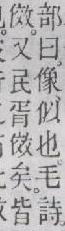 部曰。像似也。毛詩
傚。又民胥傚矣。皆